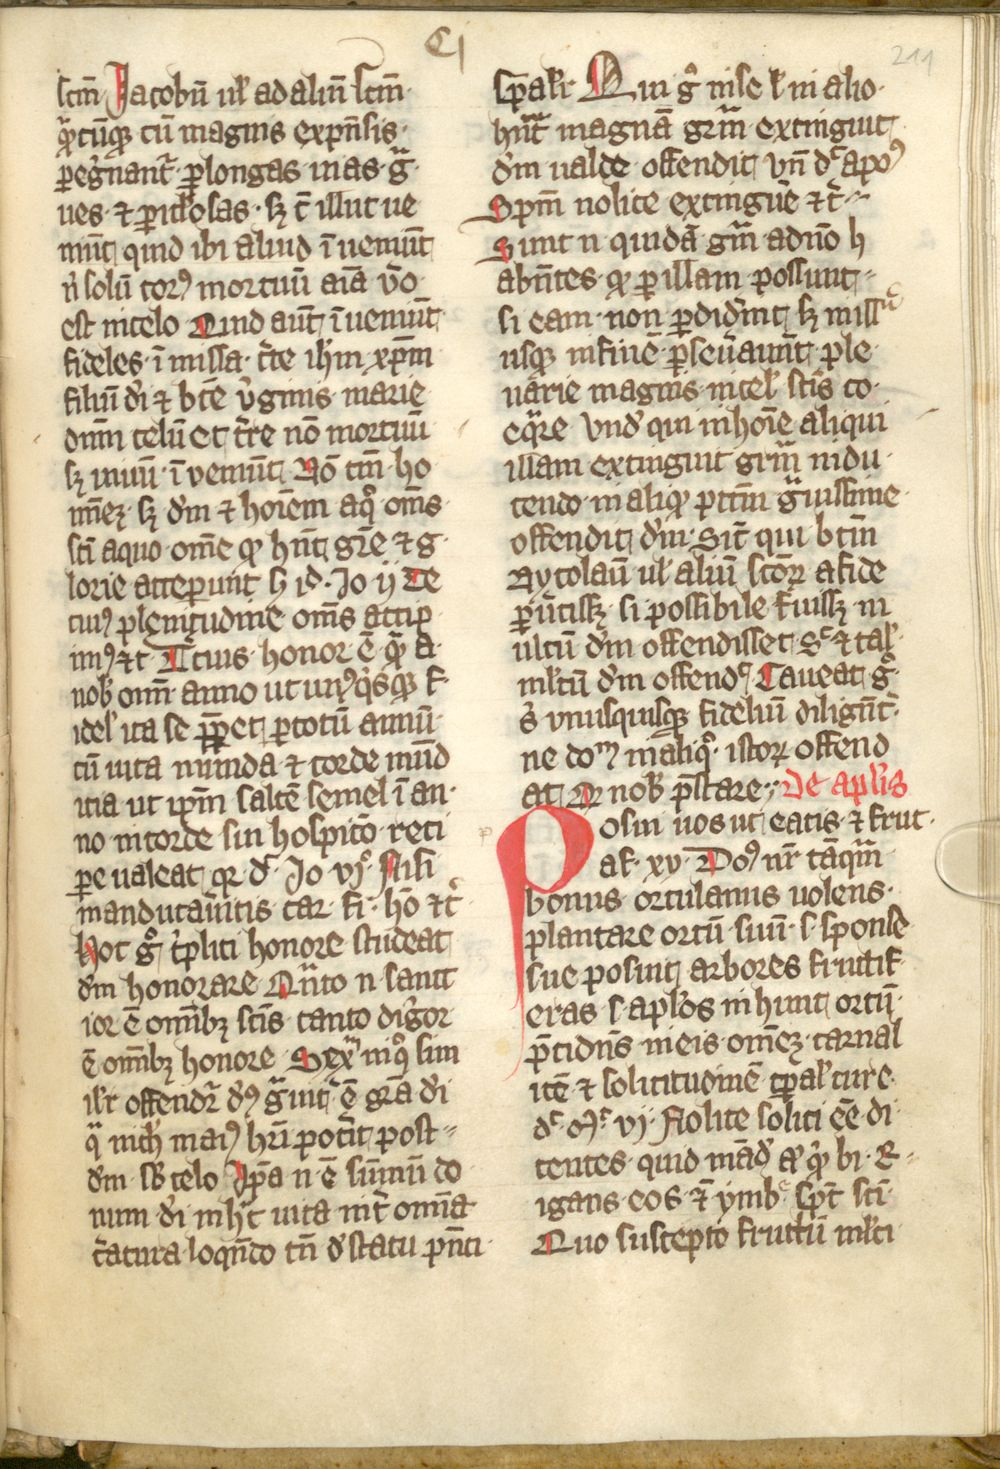 C I
211
scm̄ Jacobū ul̓ ad aliū scm̄
q̄cūq̨ cū magnis expn̄sis
ꝑegͥnant᷑ ꝑ longas uias gͣ
ues ⁊ ꝑiclosas · sꝫ t̄ illuc ue
niūt quid ibi aliud īueniūt
n̄ solū corꝰ mortuū aīa v̄o
est in celo Quid aūt īueniūt
fideles · ī missa · c̄te ih̄m xp̄m
filiū d̓i ⁊ btē v̓ginis marie
dnm̄ celi et t̄re nō mortuū
sꝫ uiuū · īveniūt Nō tm̄ ho
īnēꝫ · sꝫ d̓m ⁊ hoīem aq̊ om̄s
sc̄i aquo om̄e qᷓ hn̄t gr̄e ⁊ g
lorie acceperunt ẜ id · Jo ij De
cuiꝰ plenitudine om̄s accip
imꝰ ⁊c̄ Tͨcius honor ē qᷓ a
nob̓ om̄i anno ut unꝰqͥsqꝫ f
idel̓ ita se pp̄et ꝑ totū annū
cū uita munda ⁊ corde mūd
icia ut xp̄m saltē semel ī an
no in corde sui hospitō reci
ꝑe ualeat qꝛ d̓ Jo vjº Nisi
manducau̓itis car fi hō ⁊c̓
Hoc gͦ t̓pliti honore studeat
d̓m honorare Qͣnto n̄ sanct
ior ē om̄ibꝫ sc̄is tanto digͥor
ē om̄ibꝫ honore Sexͦ niqͥ sim
ilr̓ offendr̓ d̓ꝰ gͣuit̓ ē gr̄a d̓i
qᷓ nich̓ maiꝰ hr̄i pot̓it post
d̓m sb̓ celo Ip̄a n̄ ē sūmū do
num d̓i in hͨ uita int̓ om̄ia
c̓atura loqn̄do tn̄ d̓ statu pn̄ci
sp̄ali · Qui gͦ in se l̓ in alio
hn̄t magnā grm̄ extinguit
d̓m ualde offendit vn̄ dͨ apoꝰ
Spm̄ nolite extingue̓ ⁊c̓
Sunt n̄ quidā grm̄ ad nō h
abn̄tes qᷓ ꝑ illam possunt
si eam non ꝑdid̓int sꝫ
usqꝫ in fine ꝑseu̓auit̄ ple
narie magnis in cel̓ sc̄is co
eqͣre vnd̓ qui in hoīe aliqui
illam extinguit grm̄ indu
cendo in aliqͦ pctm̄ gͣuissime
offendit d̓m · Sic̓ qui btm̄
Nycolaū ul̓ aliū scōꝝ a fide
ꝑu̓tissꝫ si possibile fuissꝫ m
ultū d̓m offendisset Sͨ ⁊ tal̓
ml̓tū d̓m offendͥ Caueat gͦ
s̓ vnusquisqꝫ fidelium diligēt̓
ne do͞m in aliqͦ istoꝝ offend
at Qͩ nob̓ p̄stare De apl̓is
Posui uos ut eatis ⁊ fruc
af · xv · Doꝰ nr̄ tāqͣm
bonus ortulanus uolens
plantare ortū suū · s · sponse
sue posuit arbores fructif
eras s apl̓os in hunc ortū
p̄cidn̄s in eis om̄eꝫ carnal
itē ⁊ sollicitudinē tp̄al̓ cure
dͨ Mͭ vj Nolite soliciti eē di
centes quid mād̓ aͭ qͥ bi · R
igans eos ⁊ ymbͤ sp̄c sc̄i
Quo suscepto fructū ml̓ti